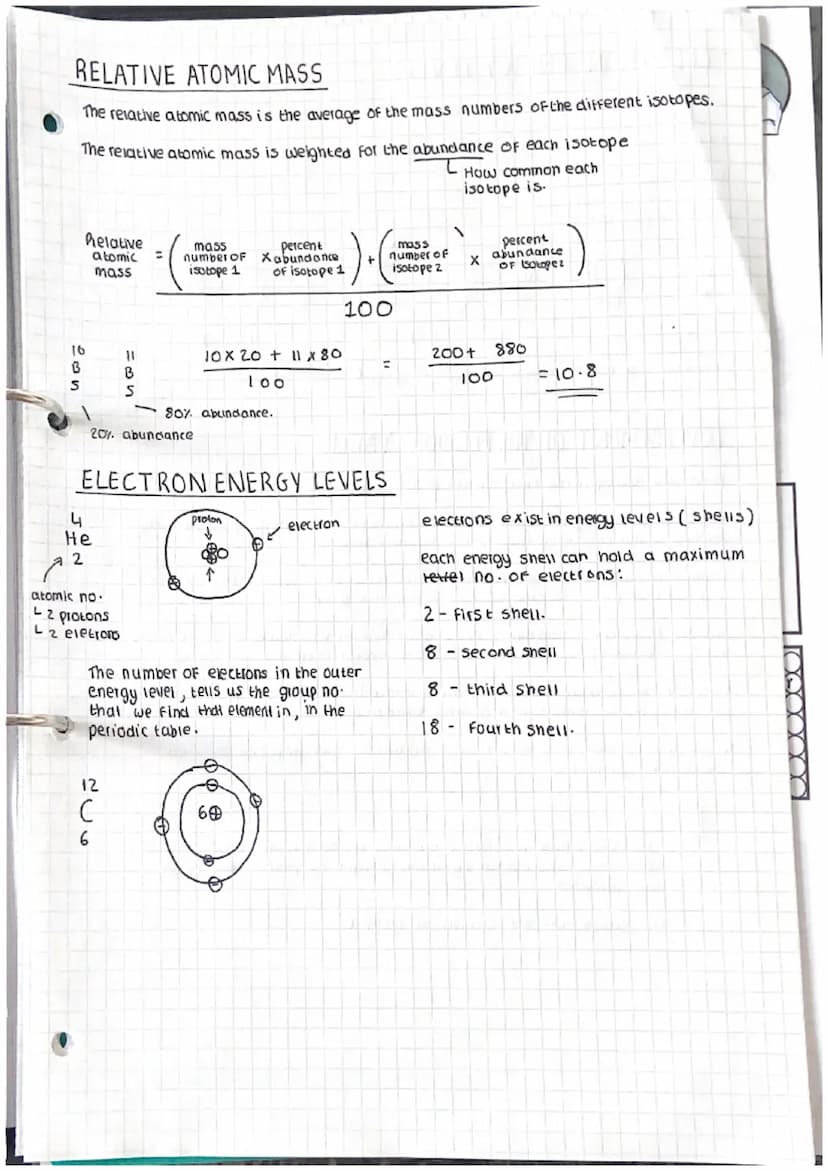 RELATIVE ATOMIC MASS
The relative atomic mass is the average of the mass numbers of the different isotopes.
The relative atomic mass is weighted for the abundance of each isotope
How common each
isotope is.
Relative atomic mass = ( mass number of isotope 1 x percent abundance of isotope 1 ) + ( mass number of isotope 2 x percent abundance of isotope 2 )
100
10 B 5
11 B 5
10 x 20 + 11 x 80 = 200 + 880 = 10.8
100 100
80% abundance.
20% abundance
ELECTRON ENERGY LEVELS
4
He
2
proton
electron
atomic no.
2 protons
2 eletrons
electrons exist in energy levels (shells)
each energy shell can hold a maximum
level no. of electrons:
2 - first shell.
8 - second shell
8 - third shell
18 - fourth shell.
The number of electrons in the outer
energy level, tells us the group no.
that we find that element in, in the
periodic table.
12
C
6
6+